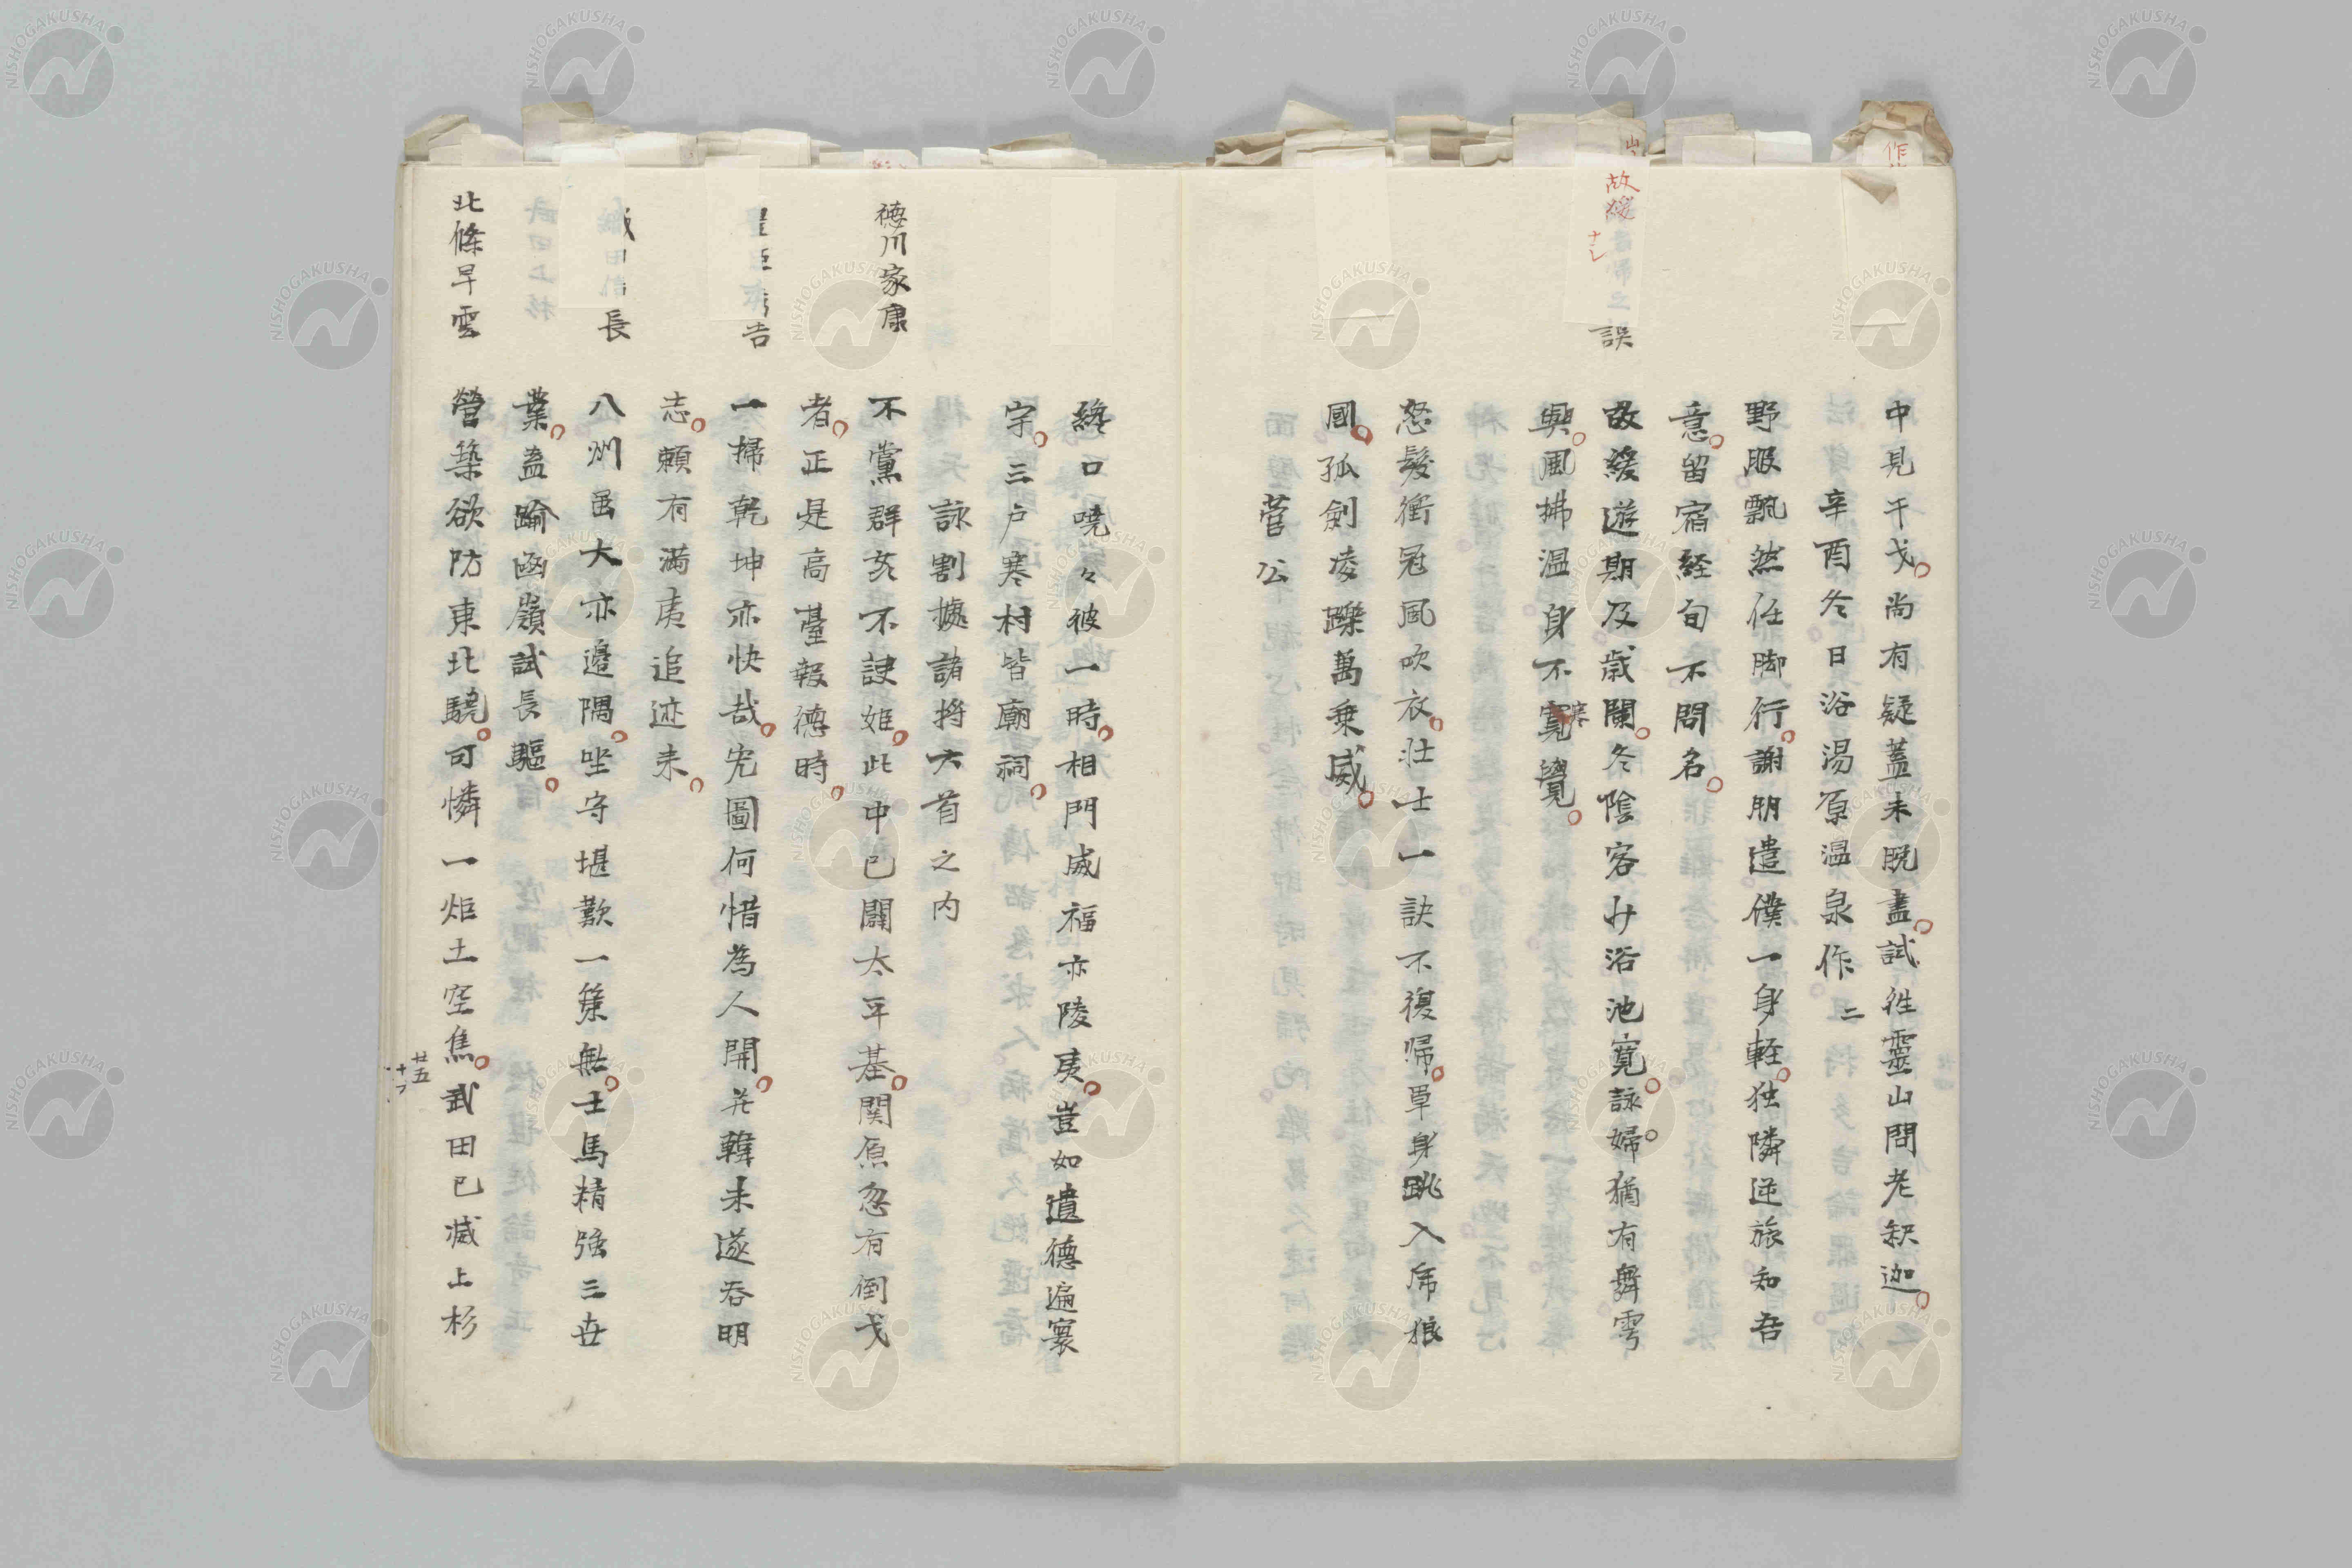 中見干戈尚有疑蓋未脱盡試徃靈山問老釈迦
辛酉冬日浴湯原温泉作 二
野服飄然任脚行謝朋遣僕一身軽独隣逆旅知吾
意留宿経旬不問名
故緩
誤
故緩遊期及歳闌冬陰客少浴池寛詠婦猶有舞雩
興風拂温身不寛覺
寒
怒髮衝冠風吹衣壮士一訣不復帰單身跳入乕狼
國孤劍凌躒萬乗威
菅公
終口嘵々彼一時相門威福亦陵夷豈如遺徳遍寰
宇三户寒村皆廟祠
詠割據諸将六首之内
徳川家康
不黨群亥不諛姫此中已闢太平基関原忽有倒戈
者正是高臺報徳時
吉
一掃乾坤亦快哉宏圖何惜為人開兵韓未遂吞明
志頼有満夷追迹来
長
八州雖大亦邉隅坐守堪歎一策無士馬精強三世
業盍踰函嶺試長驅
北條早雲
營築欲防東北驍可憐一炬土空焦武田已滅上杉
廿五
NISHOGAKUSHA